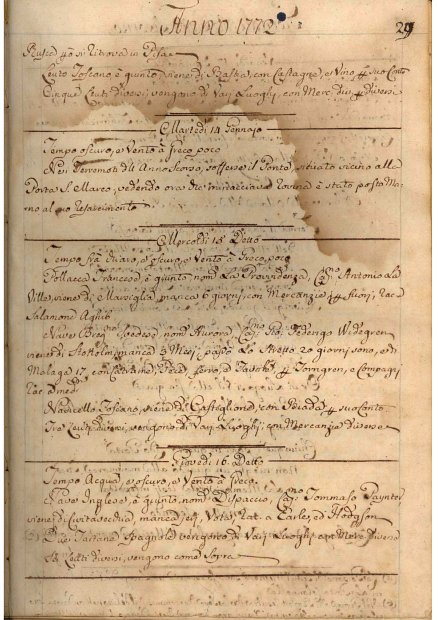 Anno 1772
29
si ritrova in Pisa
Leuto Toscano è giunto, viene di Bastia, con Castagne, e Vino suo Conto
Cinque Leuti diversi, vengono da Varj Luoghi con Merc. div. Diversi
Martedì 14 Gennajo
Tempo oscuro, e Vento à Greco poco
Nei Terremoti dell Anno scorso, sofferse il Ponte, situato vicino alla
Porta S. Marco, vedendo ora che minacciava rovina è stato posto Ma-
no al suo resarcimento
Mercoldì 15 Detto
Tempo frà Chiaro, e oscuro, e Vento à Greco poco
Pollacca Francese, è giunta nom. La Providenza, Antonio La
Villa, viene di Marsiglia, manca 6 giorni, con Mercanzie Racc.
Salamone Aghib
Nave Svedese nom. Aurora Federigo Widegren
viene di Stokolm, manca 3 Mesi, passò lo Stretto 20 giorni sono, e di
Malaga 17, con Ferro, e Tavole Torngren, e Compagni
Navicello Toscano, viene di Castiglione, con suo Conto
Tre Leuti diversi, vengono di Varj Luoghi, con Mercanzie Diverse
Giovedì 16 Detto
Tempo Acqua, e oscuro, e Vento à Greco
Nave Inglese, è giunta nom. Dispaccio, Tommaso Paynter
viene di Civitavecchia, manca Vota, Rac. a Earle, ed Hodgson
Due Tartane Spagnole vengono di Varj Luoghi con Merc. diverse
Leuti diversi, vengono come Sopra